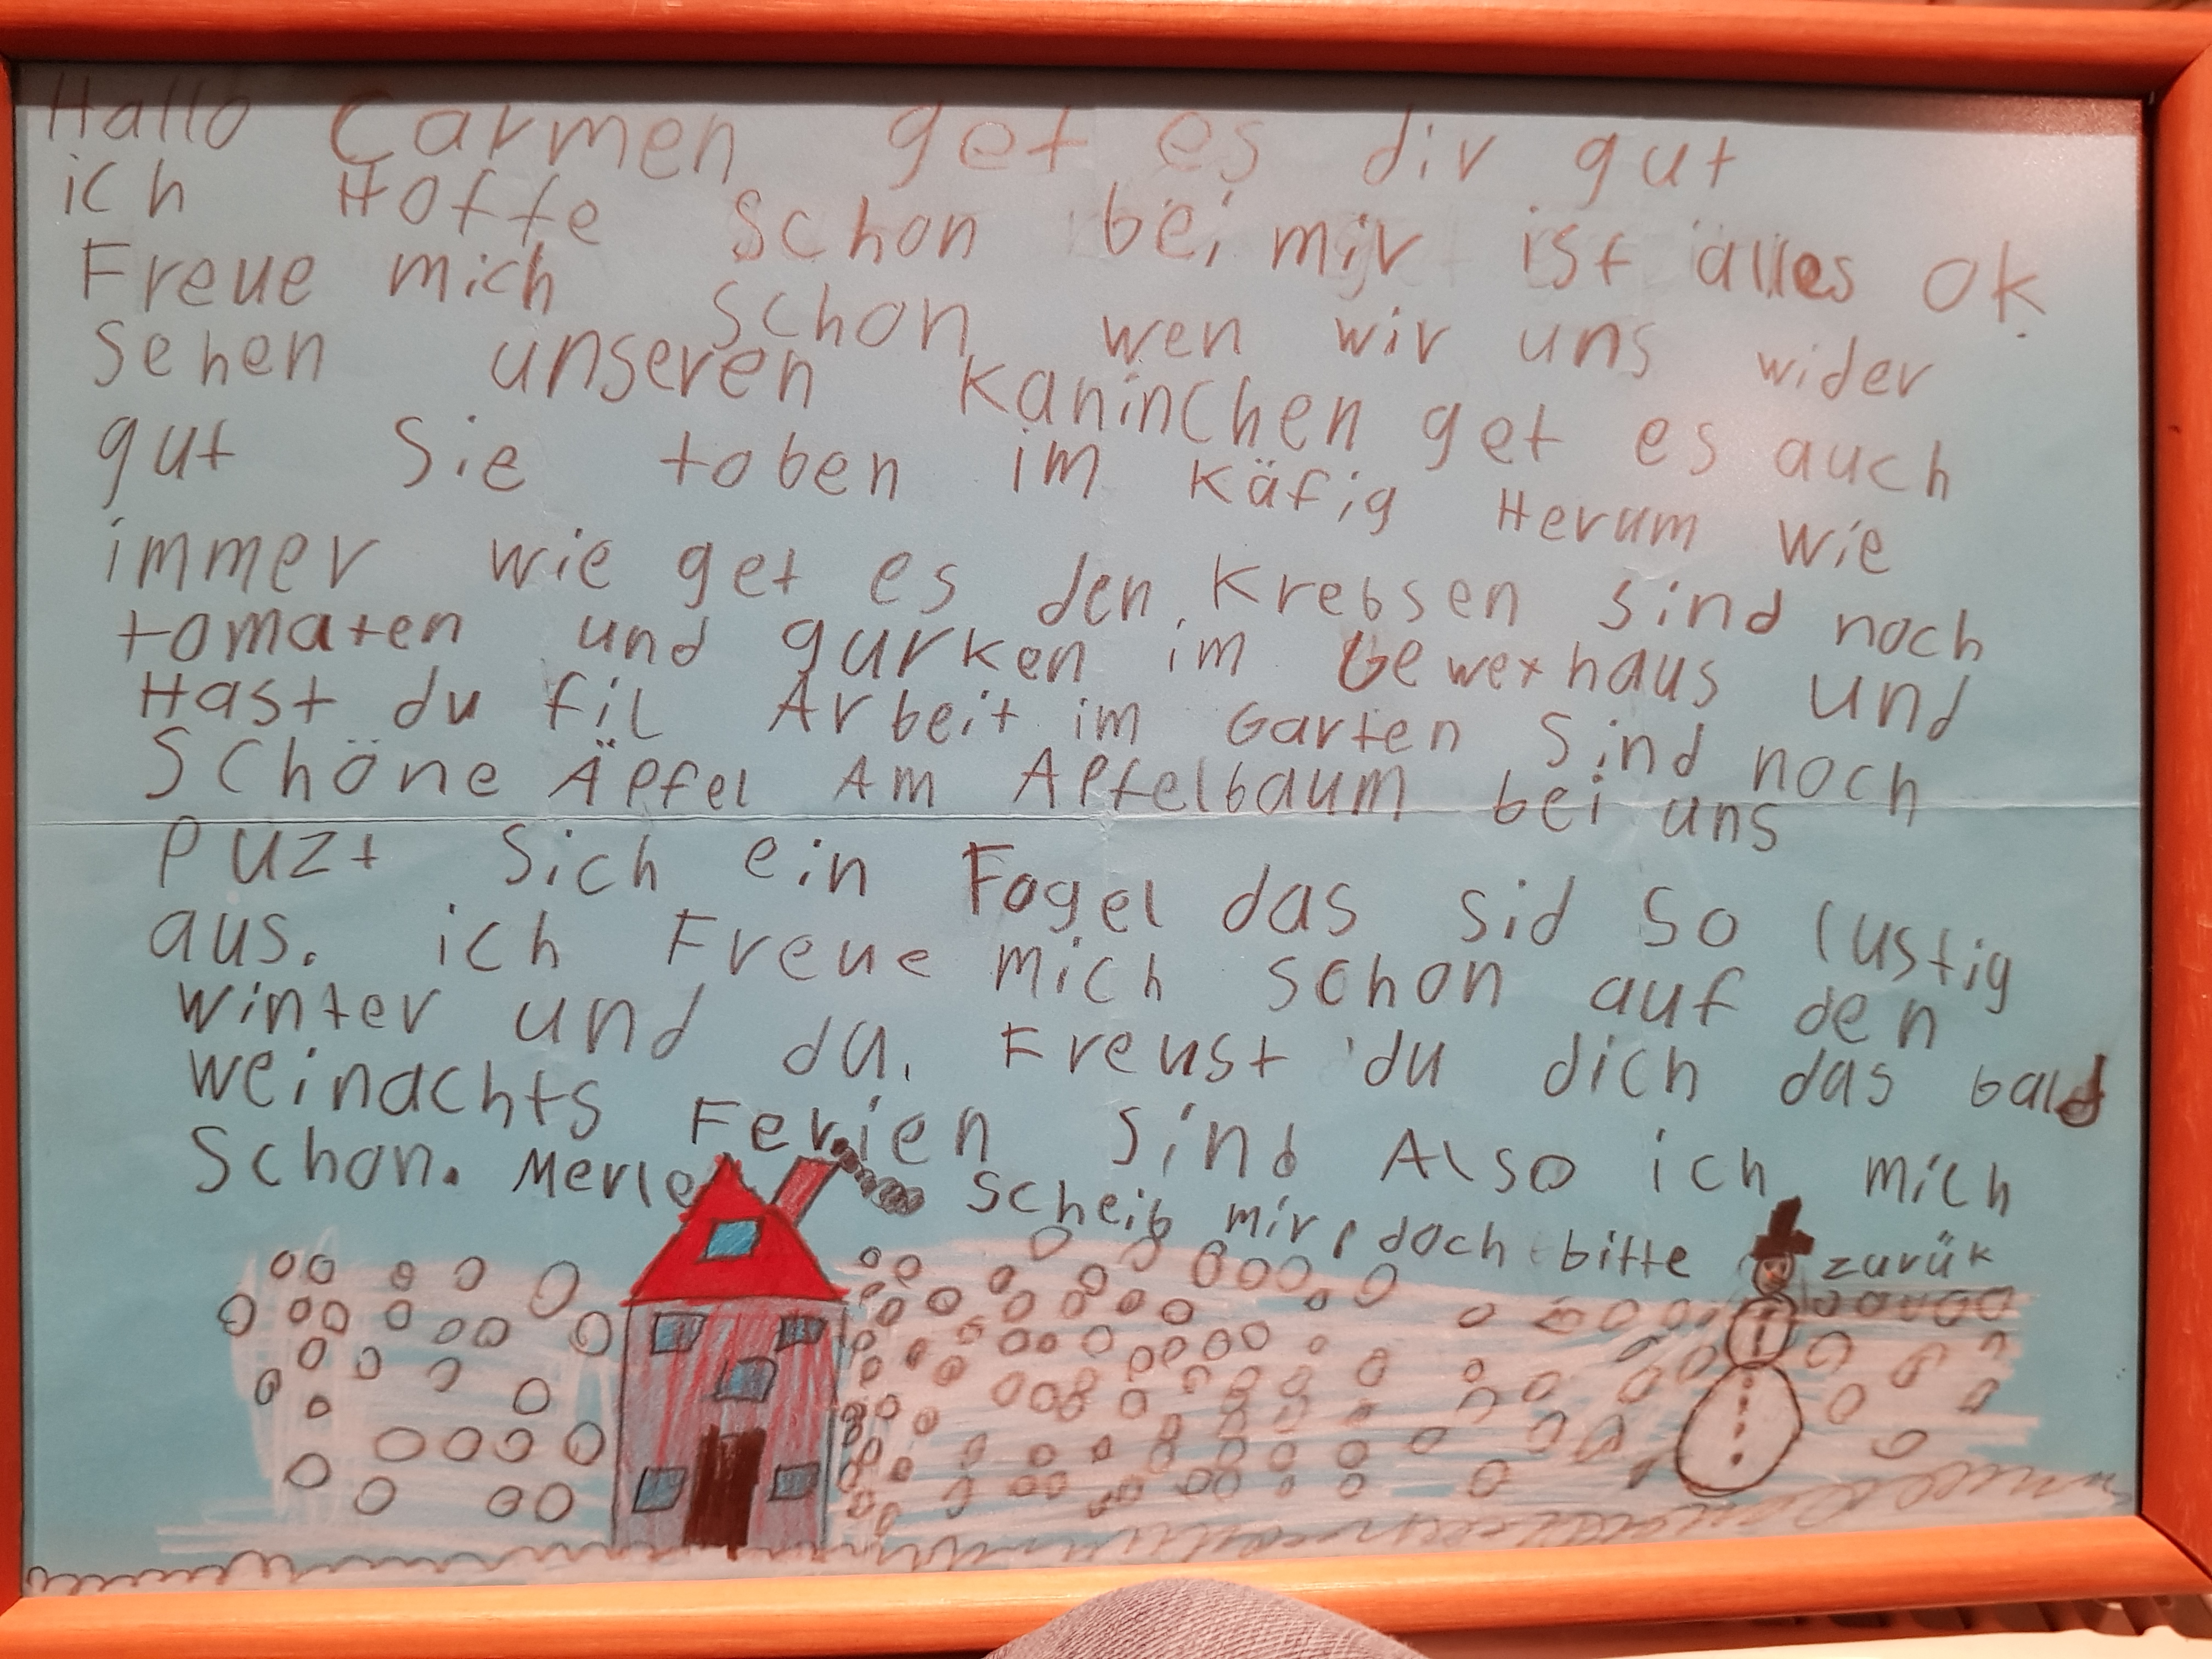 Hallo Carmen get es dir gut
ich Hoffe schon bei mir ist alles ok.
Freue mich schon wen wir uns wider
sehen unseren Kaninchen get es auch
gut Sie toben im Käfig Herum wie
immer wie get es den Krebsen sind noch
tomaten und gurken im Gewexhaus und
Hast du fil Arbeit im Garten Sind noch
Schöne Äpfel Am Apfelbaum bei uns
Puzt Sich ein Fogel das sid so lustig
aus. ich Freue mich schon auf den
winter und du. Freust du dich das bald
weinachts Ferien Sind Also ich mich
Schon. Merle scheib mir doch bitte zurük